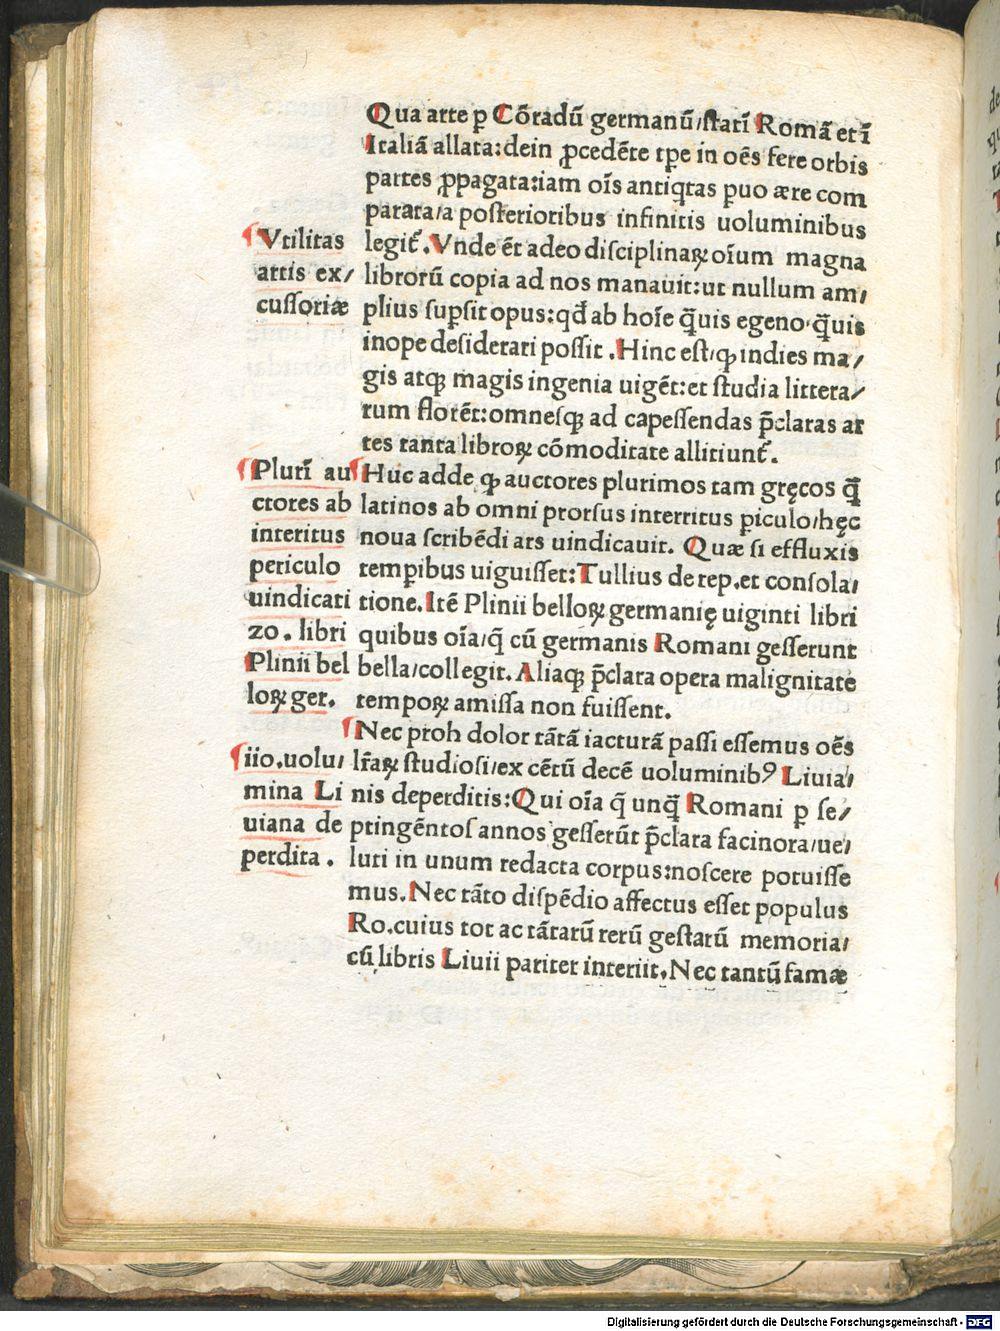 Qua arte ꝑ Cōradū germanū/statī Romā et ī
Italiā allata:dein ꝓcedēte tꝑe in oēs fere orbis
partes ꝓpagata:iam oīs antiqtas puo ære com
parata/a posterioribus infinitis uoluminibus
legit᷑. Vnde ēt adeo disciplinaꝝ oīum magna
librorū copia ad nos manauit:ut nullum am/
plius suꝑsit opus:qđ ab hoīe q̄uis egeno/q̄uis
inope desiderari possit. Hinc est/ꝙ indies ma/
gis atqꝫ magis ingenia uigēt:et studia littera/
rum florēt:omnesqꝫ ad capessendas p̄claras ar
tes tanta libroꝝ cōmoditate allitiunt᷑.
¶Huc adde ꝙ auctores plurimos tam gręcos q̄
latinos ab omni prorsus interritus ꝑiculo/hęc
noua scribēdi ars uindicauit. Quæ si effluxis
temꝑibus uiguisset:Tullius de rep.et consola/
tione.Itē Plinii belloꝝ germanię uiginti libri
quibus oīa/q̄ cū germanis Romani gesserunt
bella/collegit. Aliaqꝫ p̄clara opera malignitate
tempoꝝ amissa non fuissent.
¶Nec proh dolor tātā iacturā passi essemus oēs
lr̄aꝝ studiosi/ex cētū decē uoluminibꝰ Liuia/
nis deperditis:Qui oīa q̄ unq̄ Romani ꝑ se/
ptingētos annos gesserūt p̄clara facinora/ue/
luti in unum redacta corpus:noscere potuisse
mus.Nec tāto dispēdio affectus esset populus
Ro.cuius tot ac tātarū rerū gestarū memoria/
cū libris Liuii pariter interiit.Nec tantū famæ
¶Vtilitas
artis ex/
cussoriæ
¶Plurī au
ctores ab
interitus
periculo
uindicati
zo. libri
Plinii bel
loꝝ ger.
¶iio.uolu/
mina Li
uiana de
perdita.
Digitalisierung gefördert durch die Deutsche Forschungsgemeinschaft - DFG